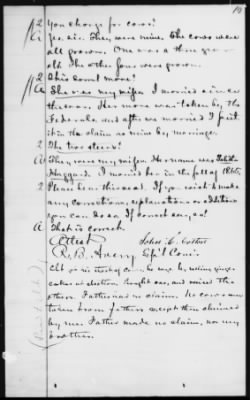 Q You charge for cows?
A Yes sir. They were mine. The cows were
all grown. One was a three year
old. The other four were grown.
Q This sorrel mare?
A She was my wife's. I married since
the war. Her mare was taken by the
Federals and after we married I put
it in the claim as mine by marriage.
Q The two steers?
A They were my wife's. Her name was
Haggard. I married her in the fall of
Q Please hear this read. If you wish to make
any corrections, explanations or additions
you can do so. If correct say so?
A That is correct.
Attest
R. B. Avery Sp'l Com'r.
cakes at election, bought one, and mixed the
others. Father has no claim. No cows were
taken from fathers except those claimed
by me. Father made no claim, nor my
brother.